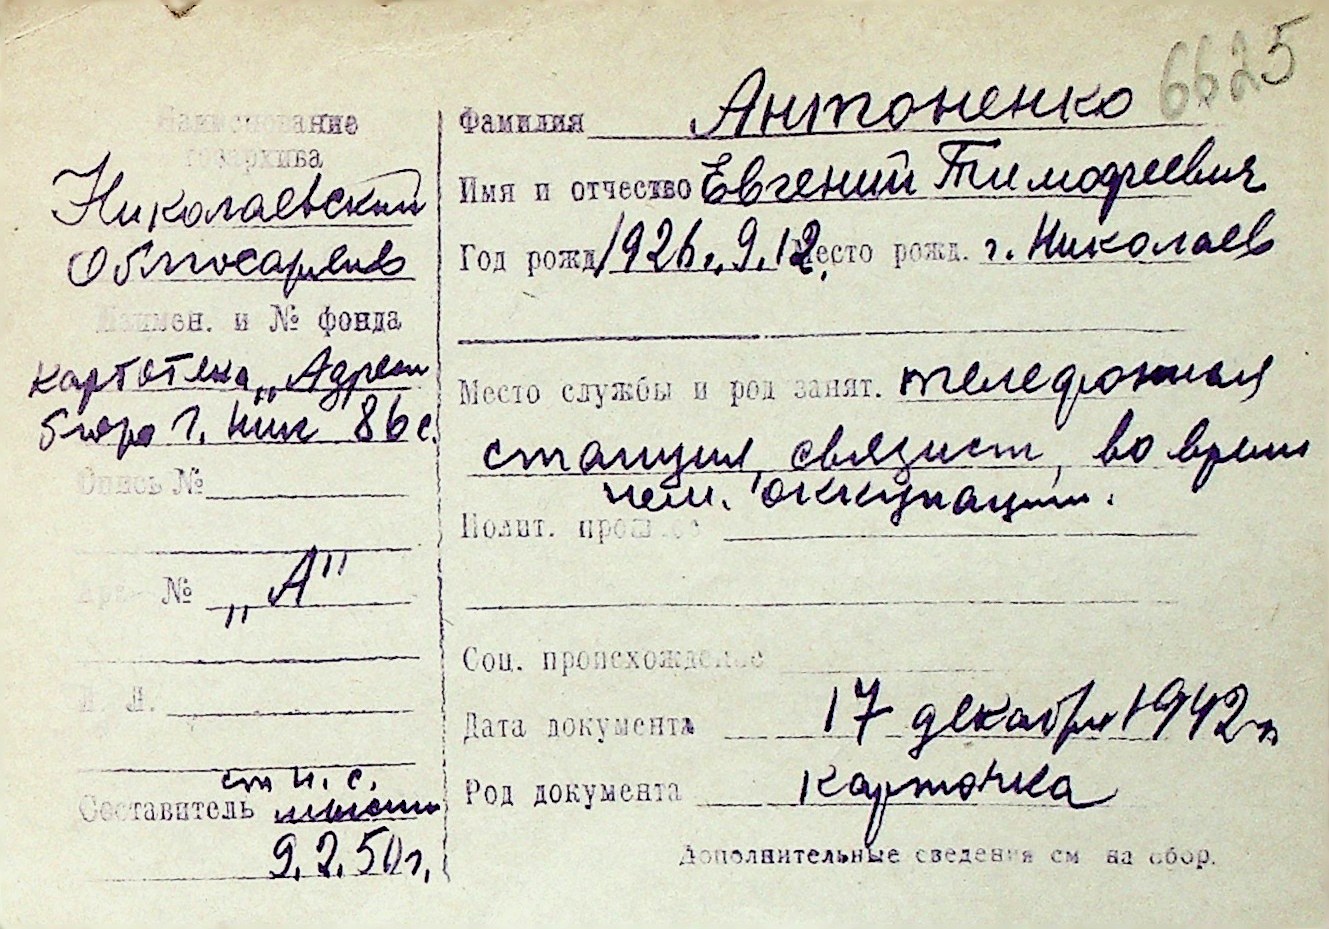 6625
Наименование
госархива
Николаевский
Облгосархив
Наимен. и № фонда
картотека "Адресн
бюро г. Ник 86 с.
Опись №
Арх. № „А"
К. Л.
ст н. с.
Составитель
9.2.50 г.
Фамилия Антоненко
Имя и отчество Евгений Тимофеевич
Год рожд. 1926., 9.12. Место рожд. г. Николаев
Место службы и род занят. телефонная
станция, связист, во время
нем. оккупации.
Полит. прошлое
Соц. происхождение
Дата документа 17 декабря 1942 г.
Род документа карточка
Дополнительные сведения см на обор.